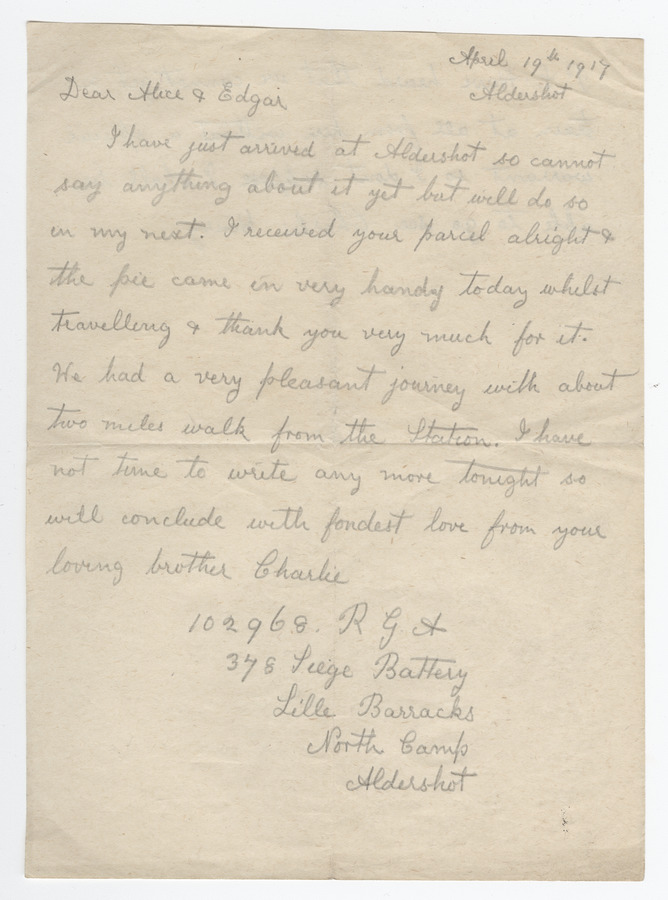 April 19th 1917
Aldershot
Dear Alice & Edgar
I have just arrived at Aldershot so cannot
say anything about it yet but will do so
in my next. I received your parcel alright &
the pie came in very handy today whilst
travelling & thank you very much for it.
We had a very pleasant journey with about
two miles walk from the Station. I have
not time to write any more tonight so
will conclude with fondest love from your
loving brother Charlie
102968. R G A
378 Siege Battery
Lille Barracks
North Camp
Aldershot